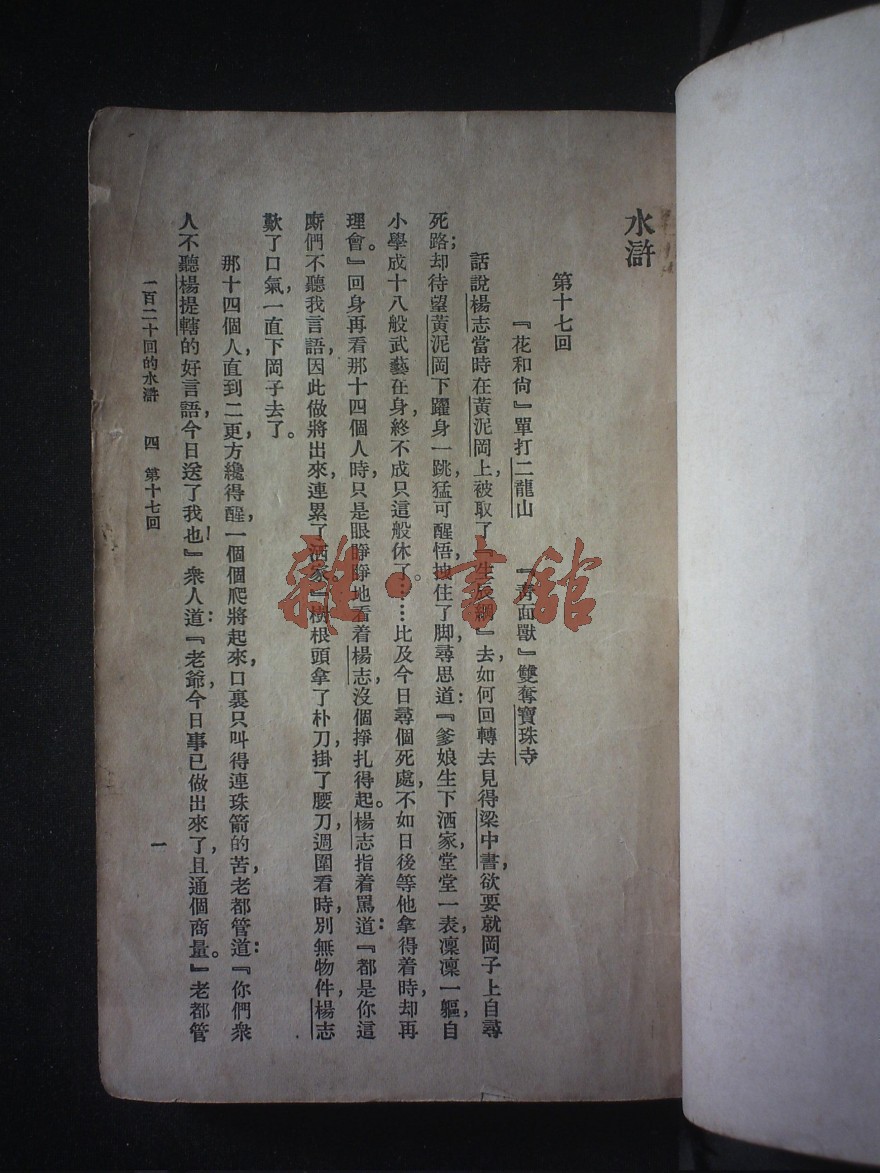 水滸
第十七回
『花和尙』單打二龍山 『靑面獸』雙奪寶珠寺
話說楊志當時在黃泥岡上，被取了『生辰綱』去，如何回轉去見得梁中書，欲要就岡子上自尋
死路；却待望黃泥岡下躍身一跳，猛可醒悟，拽住了脚，尋思道：『爹娘生下洒家，堂堂一表，凜凜一軀，自
小學成十八般武藝在身，終不成只這般休了……比及今日尋個死處，不如日後等他拿得着時，却再
理會。』回身再看那十四個人時，只是眼睜睜地看着楊志，沒個掙扎得起。楊志指着罵道：『都是你這
廝們不聽我言語，因此做將出來，連累了洒家』樹根頭拿了朴刀，掛了腰刀，週圍看時，別無物件，楊志
歎了口氣，一直下岡子去了。
那十四個人，直到二更，方纔得醒，一個個爬將起來，口裏只叫得連珠箭的苦，老都管道：『你們衆
人不聽楊提轄的好言語，今日送了我也！』衆人道：『老爺，今日事已做出來了，且通個商量。』老都管
一百二十回的水滸 四 第十七回 一
雜·書館